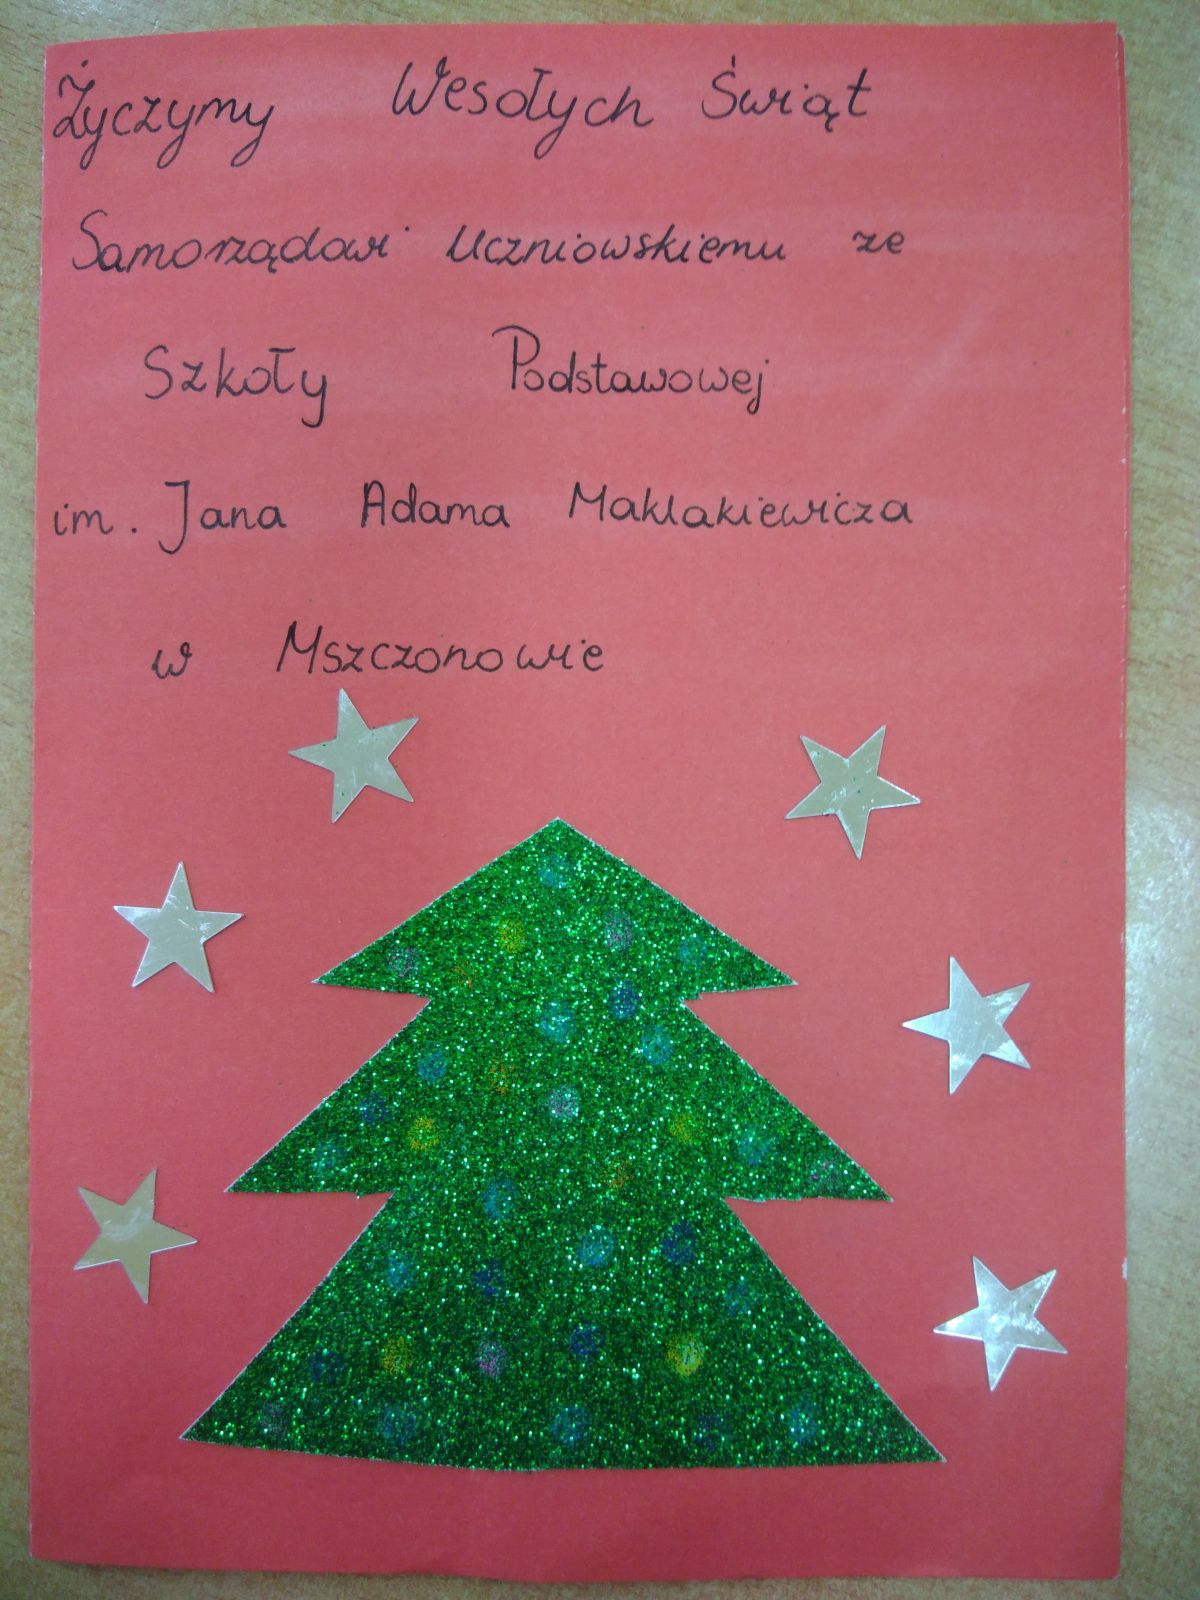 Życzymy Wesołych Świąt
Samorządowi Uczniowskiemu ze
Szkoły Podstawowej
im. Jana Adama Maklakiewicza
w Mszczonowie